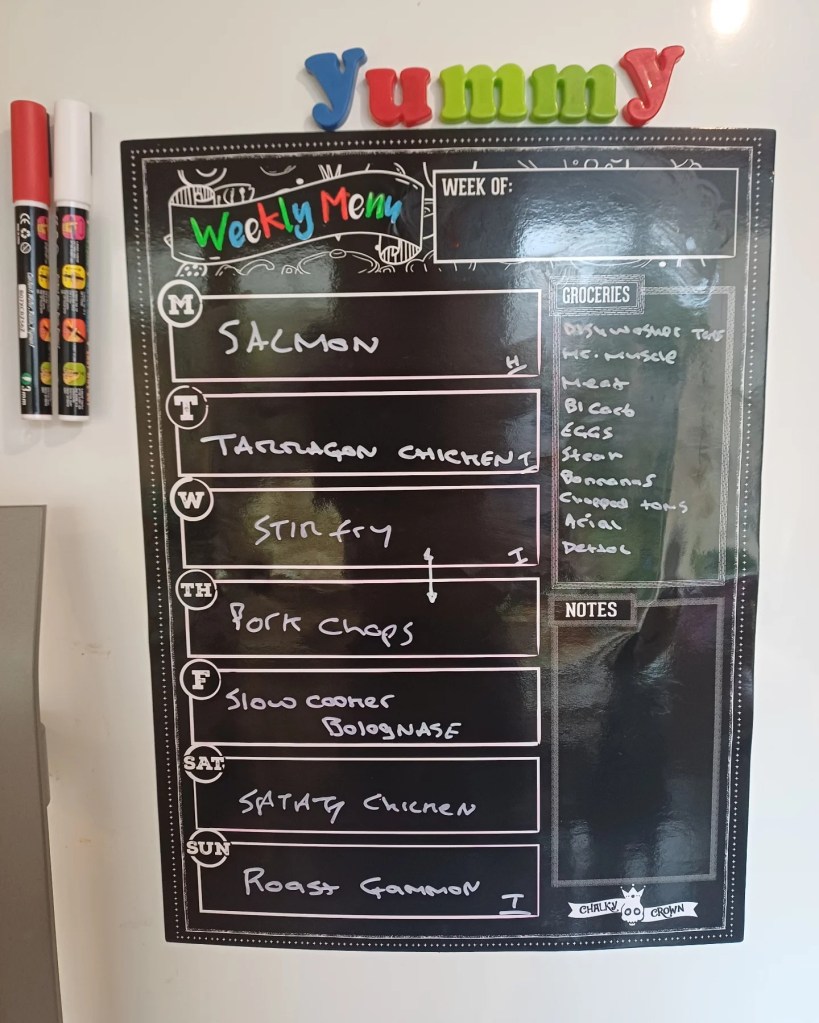 yummy
Weekly Menu
WEEK OF:
M
SALMON
H
T
TARRAGON CHICKEN I
W
STIR fry
I
TH
Pork Chops
F
Slow cooker
BologNASE
SAT
SATATY CHICKEN
SUN
Roast Gammon
I
GROCERIES
Dishwasher TABS
Mr. Muscle
Meat
Bicarb
EGGS
Steak
Bannanas
Chopped toms
Arial
Dettol
NOTES
CHALKY CROWN
3mm